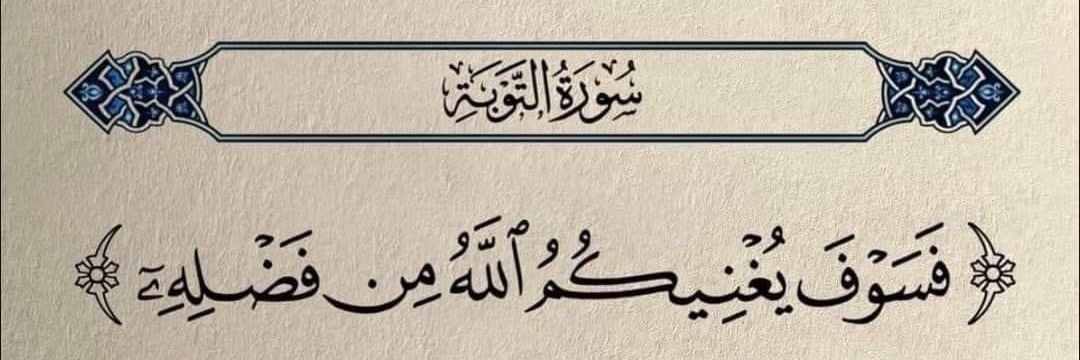 سُورَةُ التَّوْبَةِ
﴿فَسَوْفَ يُغْنِيكُمُ ٱللَّهُ مِن فَضْلِهِۦٓ﴾